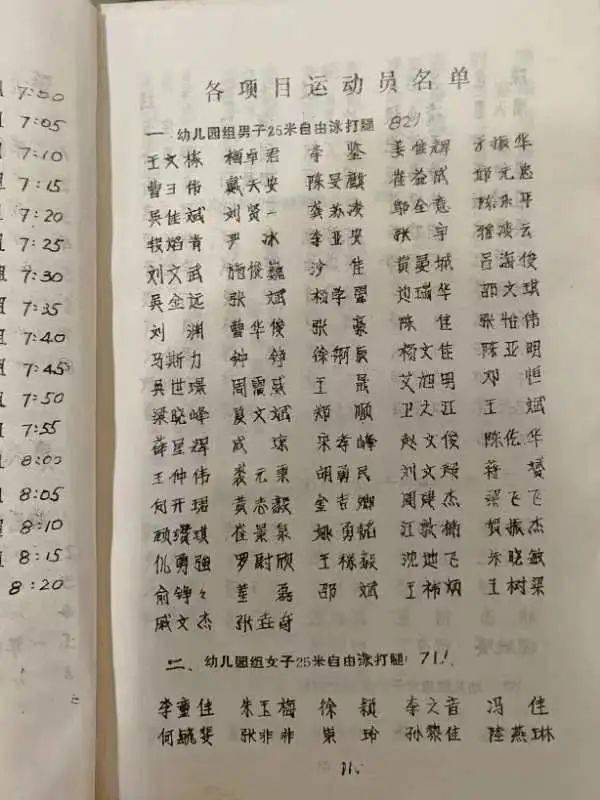 7:00
7:05
7:10
7:15
7:20
7:25
7:30
7:35
7:40
7:45
7:50
7:55
8:00
8:05
8:10
8:15
8:20
各项目运动员名单
一、幼儿园组男子25米自由泳打腿 82!
王文栋 杨卓君 李鉴 姜佳辉 振华
曹王伟 戴天安 陈旻麒 崔益成 郑元忠
吴佳斌 刘贤一 龚苏凌 邬全意 陈乐平
尹冰 李亚安 张宇 凌云
刘文武 施俊巍 沙佳 黄晏城 吕海俊
吴金远 张斌 杨学望 边瑞华 邵文琪
刘渊 曹华俊 张豪 陈佳 张怡伟
马斯力 钟铮 徐朔辰 杨文佳 陈亚明
吴世璟 周震威 王晟 艾旭明 邓恒
梁晓峰 夏文斌 郑顺 卫文江 王斌
薛星辉 成琼 宋孝峰 赵文俊 陈佐华
王仲伟 裘元栗 胡勇民 刘文 蒋赟
何开珺 黄志毅 金吉卿 周建杰 梁飞飞
顾瓒琪 崔景泉 姚勇韬 江敦楠 贺振杰
仇勇强 罗尉欣 王秾毅 沈旭飞 朱晓敏
俞铮々 董磊 邵斌 王祎炳 王树梁
戚文杰 张垚奇
二、幼儿园组女子25米自由泳打腿 71!
李童佳 朱玉梅 徐颖 李文音 冯佳
何毓斐 张非非 巢玲 孙黎佳 陆燕琳
11.